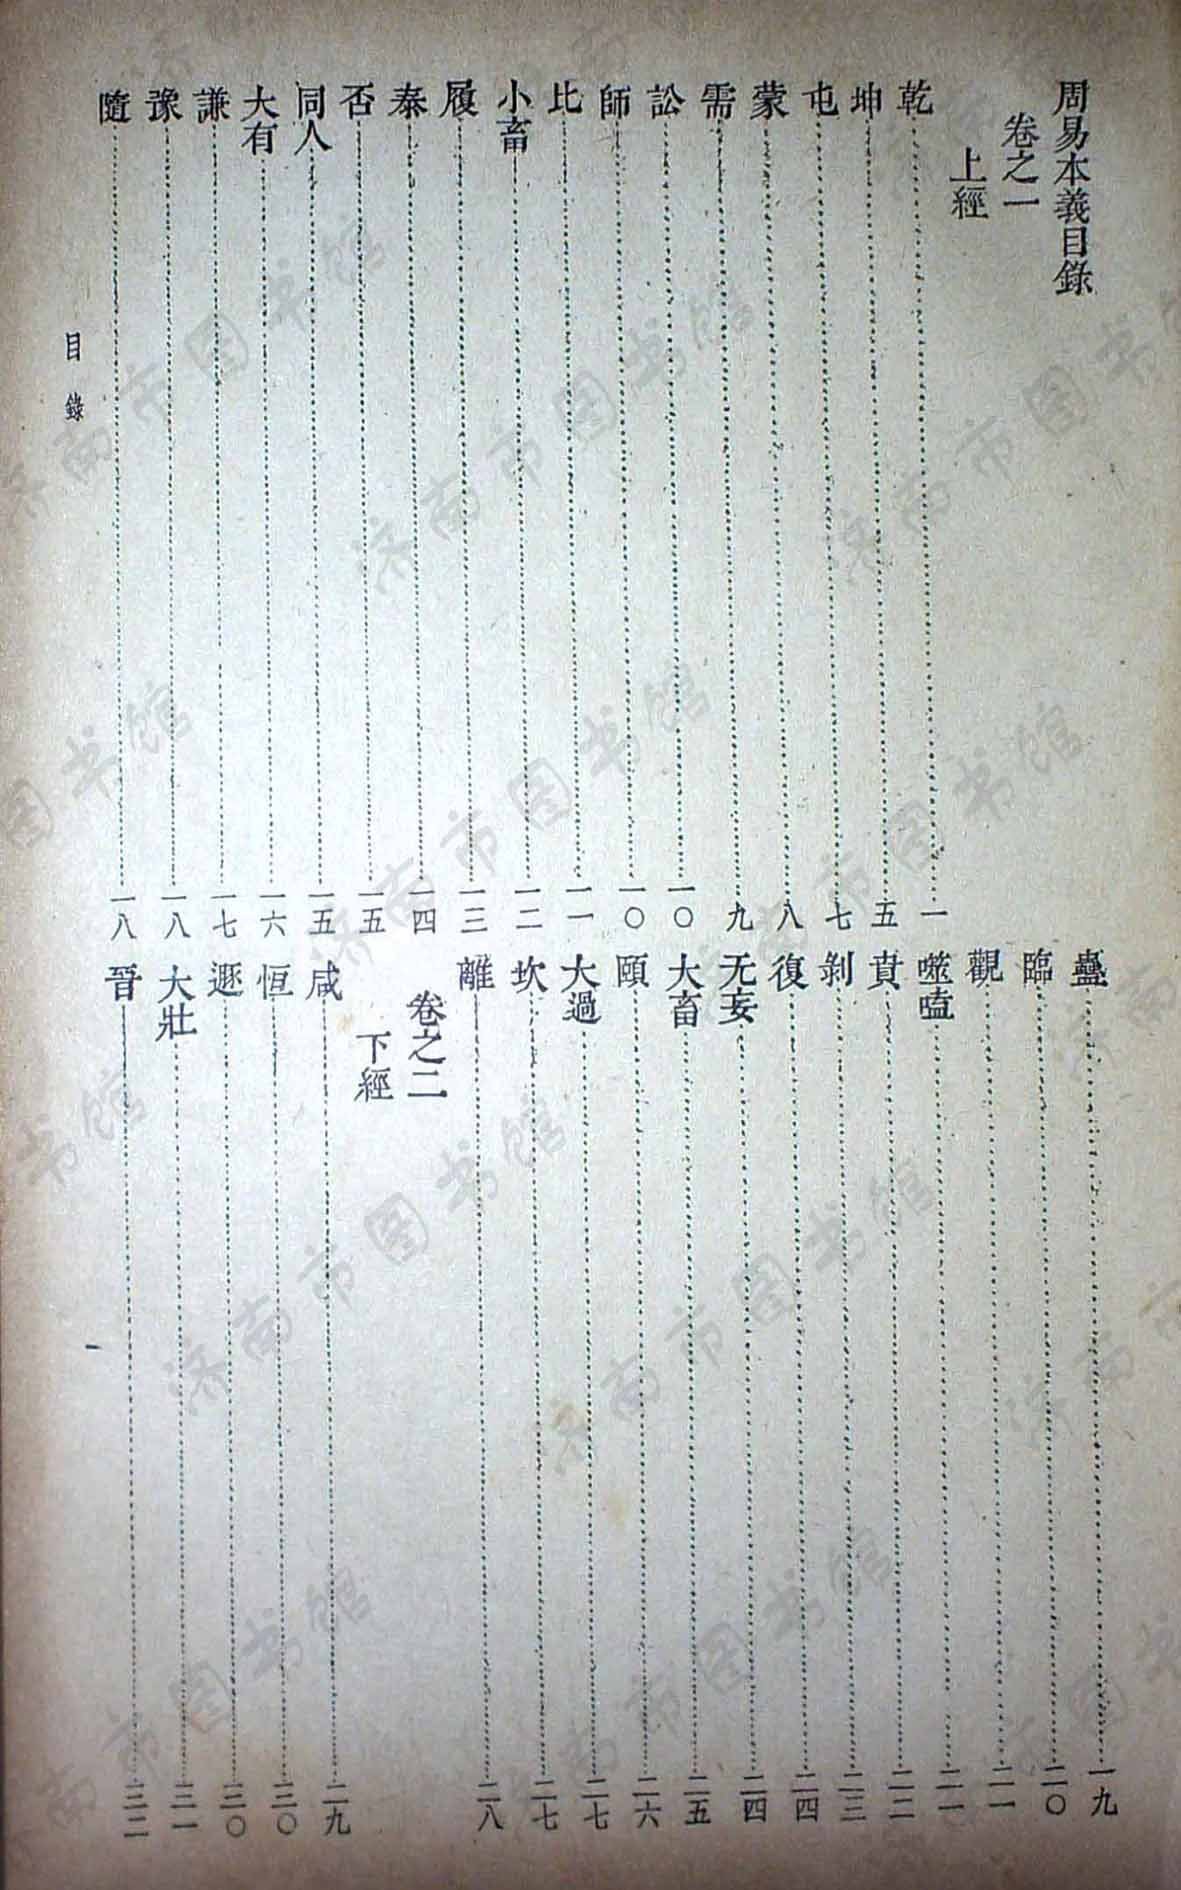 周易本義目錄
卷之一
上經
乾……一
坤……五
屯……七
蒙……八
需……九
訟……一〇
師……一〇
比……一一
小畜……一二
履……一三
泰……一四
否……一五
同人……一五
大有……一六
謙……一七
豫……一八
隨……一八
蠱……一九
臨……二〇
觀……二一
噬嗑……二一
賁……二二
剝……二三
復……二四
无妄……二四
大畜……二五
頤……二六
大過……二七
坎……二七
離……二八
卷之二
下經
咸……二九
恒……三〇
遯……三〇
大壯……三一
晉……三二
目錄
一
济南市图书馆